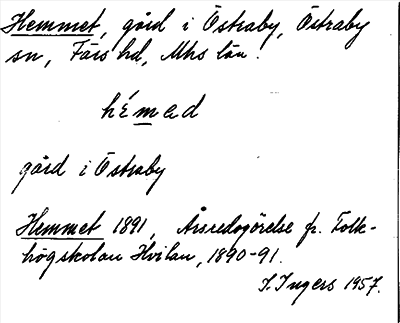 Hemmet, gård i Östraby, Östraby
sn, Färs hd, Mhs län.
hémad
gård i Östraby
Hemmet 1891, Årsredogörelse fr. Folk-
högskolan Hvilan, 1890-91.
I. Ingers 1957.